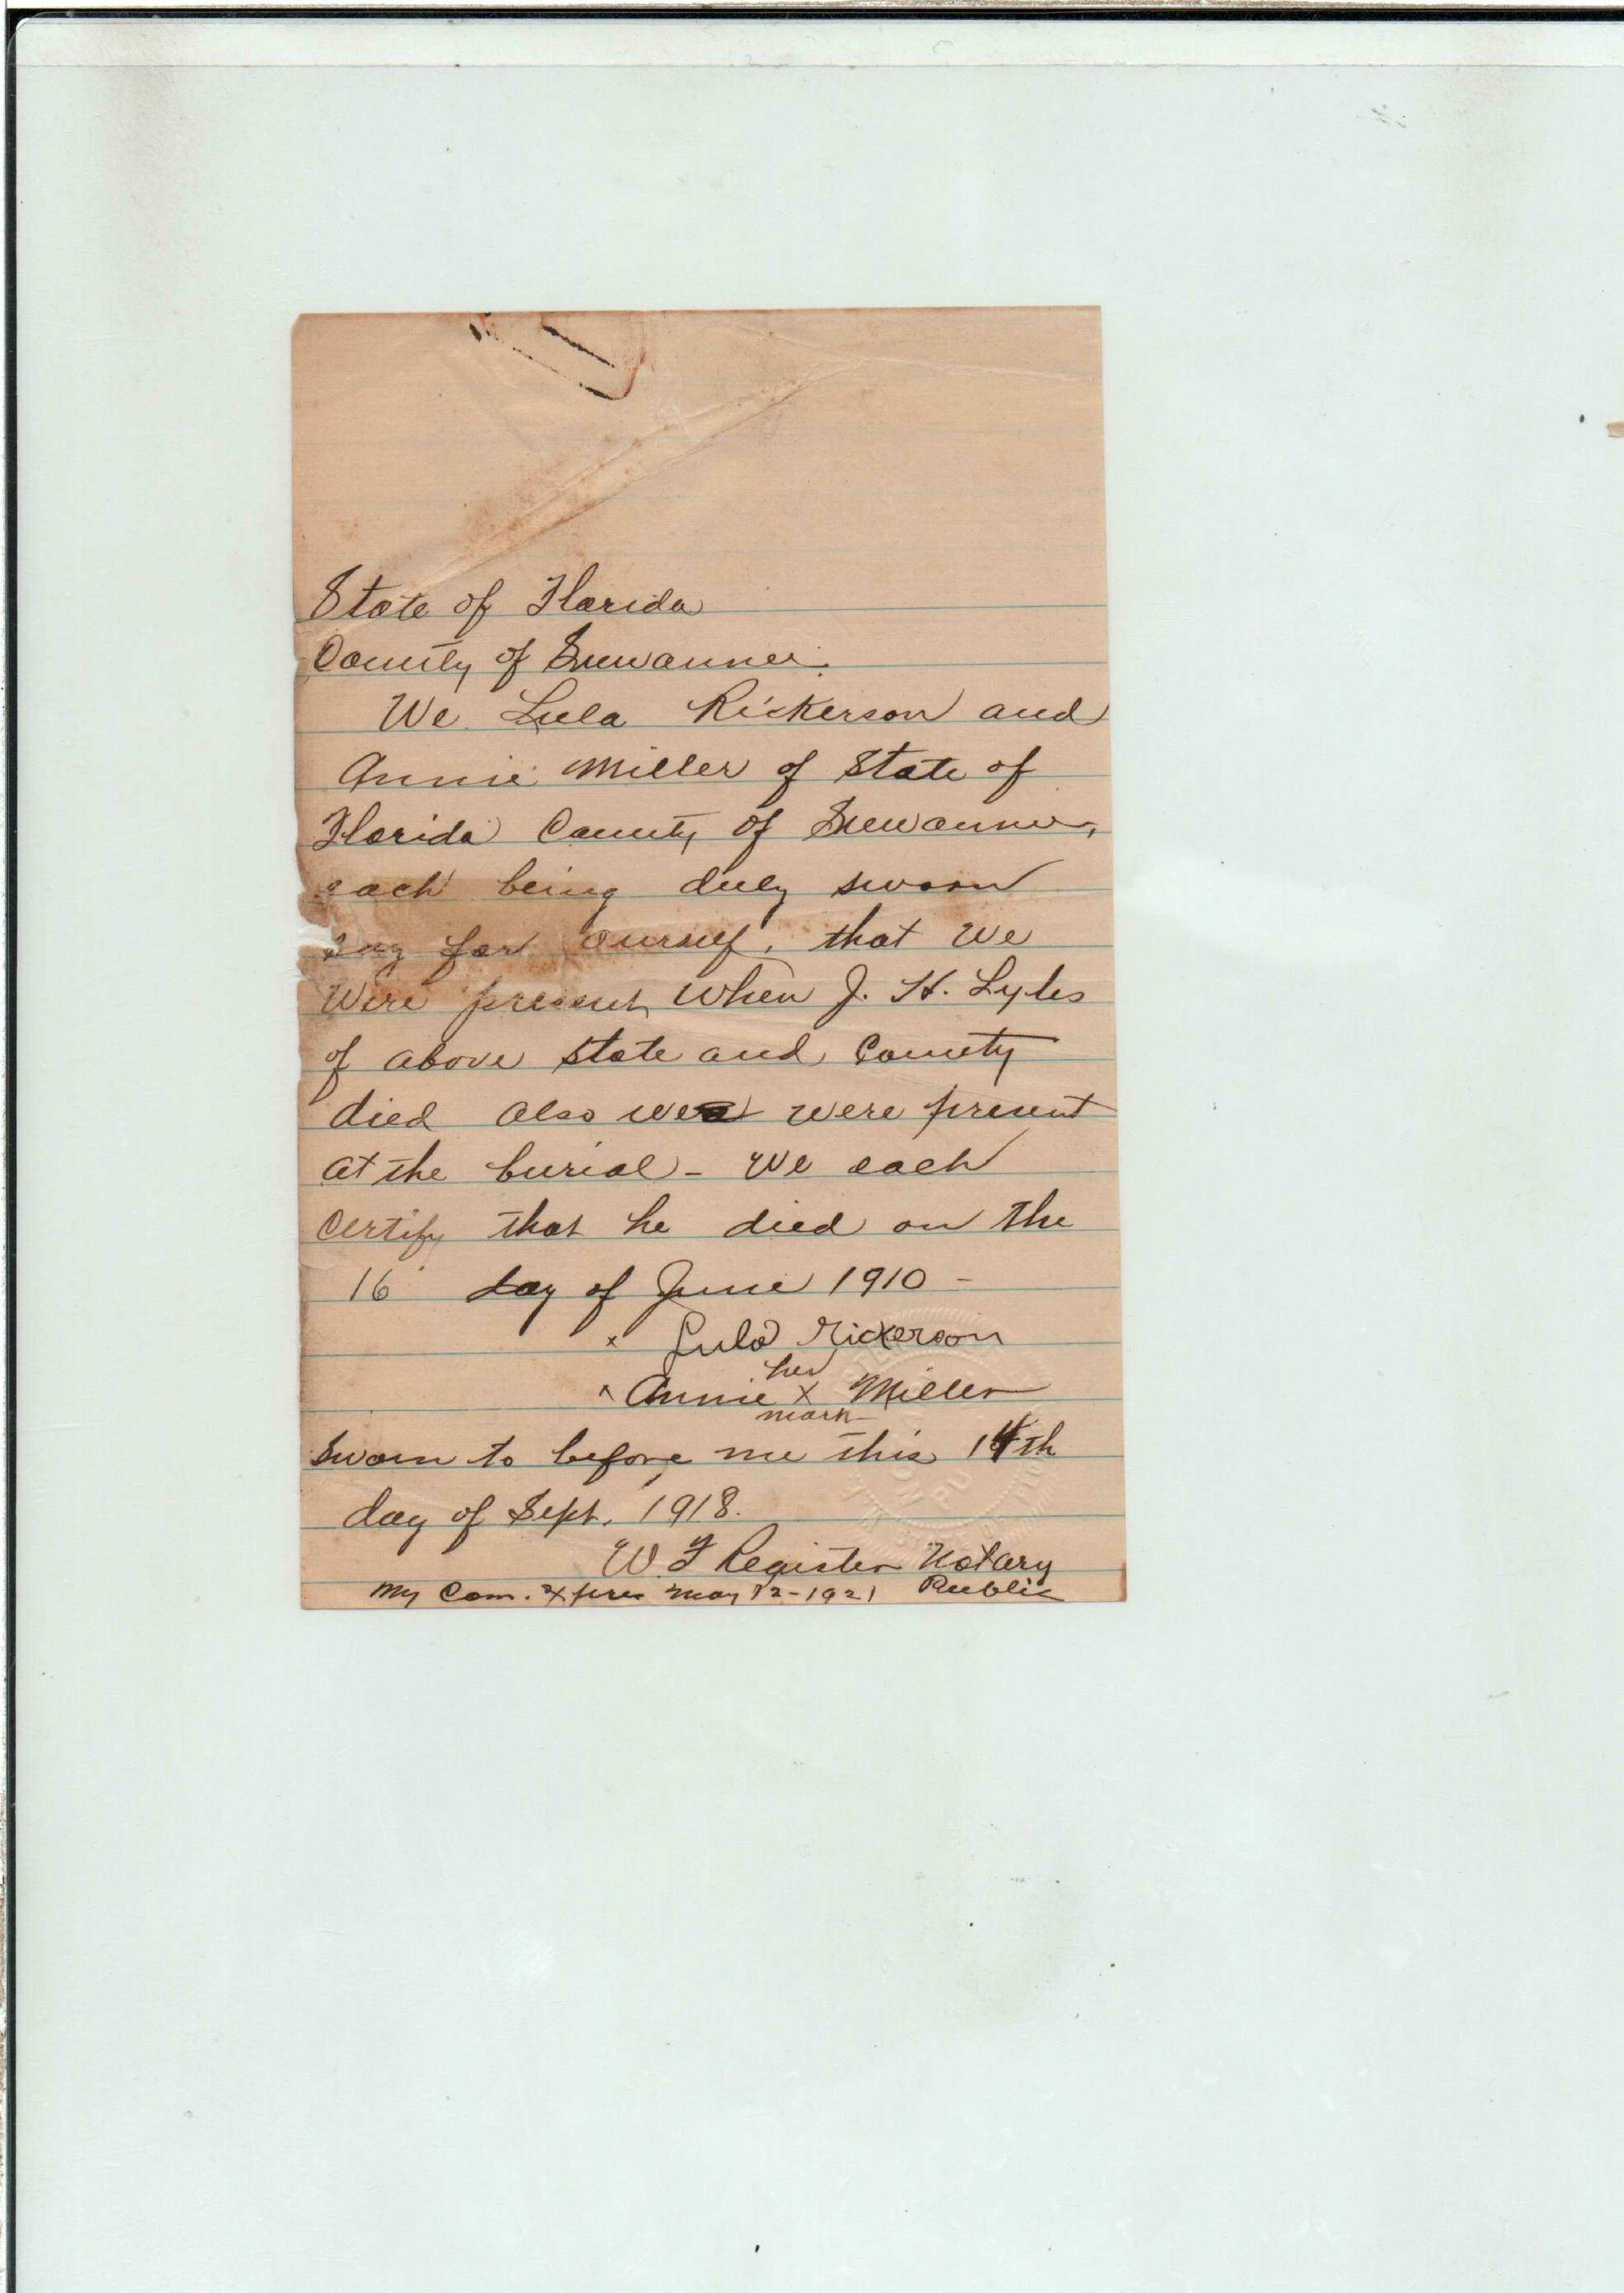 State of Florida
County of Suwannee.
We Lula Rickerson and
Annie Miller of State of
Florida County of Suwannee,
each being duly sworn
say for ourself, that We
Were present when J. H. Lyles
of above state and County
died Also we were present
at the burial - We each
Certify that he died on the
16 day of June 1910 -
x Lula Rickerson
her
x Annie X Miller
mark
Sworn to before me this 14th
day of Sept. 1918.
W. F Register Notary
My Com. Expires May 12-1921 Public